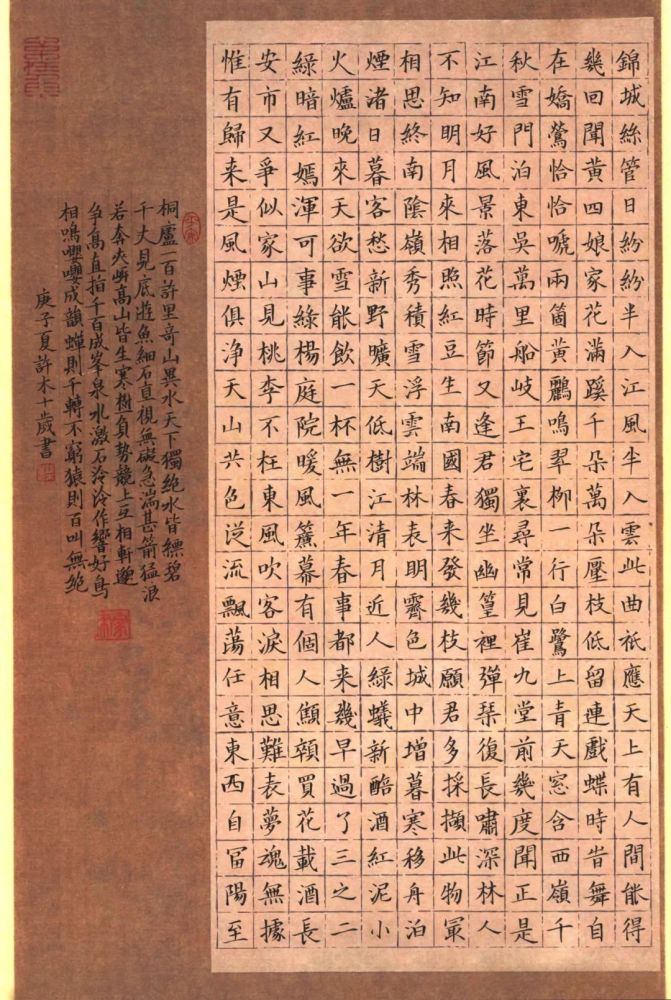 錦城絲管日紛紛半入江風半入雲此曲祇應天上有人間能得
幾回聞黃四娘家花滿蹊千朵萬朵壓枝低留連戲蝶時旹舞自
在嬌鶯恰恰嗁兩箇黃鸝鳴翠柳一行白鷺上青天窓含西嶺千
秋雪門泊東吳萬里船岐王宅裏尋常見崔九堂前幾度聞正是
江南好風景落花時節又逢君獨坐幽篁裡彈琴復長嘯深林人
不知明月來相照紅豆生南國春来發幾枝願君多採擷此物冣
相思終南陰嶺秀積雪浮雲端林表明霽色城中增暮寒移舟泊
煙渚日暮客愁新野曠天低樹江清月近人綠蟻新醅酒紅泥小
火爐晚來天欲雪能飲一杯無一年春事都来幾早過了三之二
綠暗紅嫣渾可事綠楊庭院暖風簾幕有個人顦顇買花載酒長
安市又爭似家山見桃李不枉東風吹客淚相思難表夢魂無據
惟有歸来是風煙俱淨天山共色從流飄蕩任意東西自富陽至
桐廬一百許里奇山異水天下獨絕水皆縹碧
千丈見底遊魚細石直視無礙急湍甚箭猛浪
若奔夾岸高山皆生寒樹負勢競上互相軒邈
爭高直指千百成峯泉水激石泠泠作響好鳥
相鳴嚶嚶成韻蟬則千轉不窮猿則百叫無絕
庚子夏許本十歲書